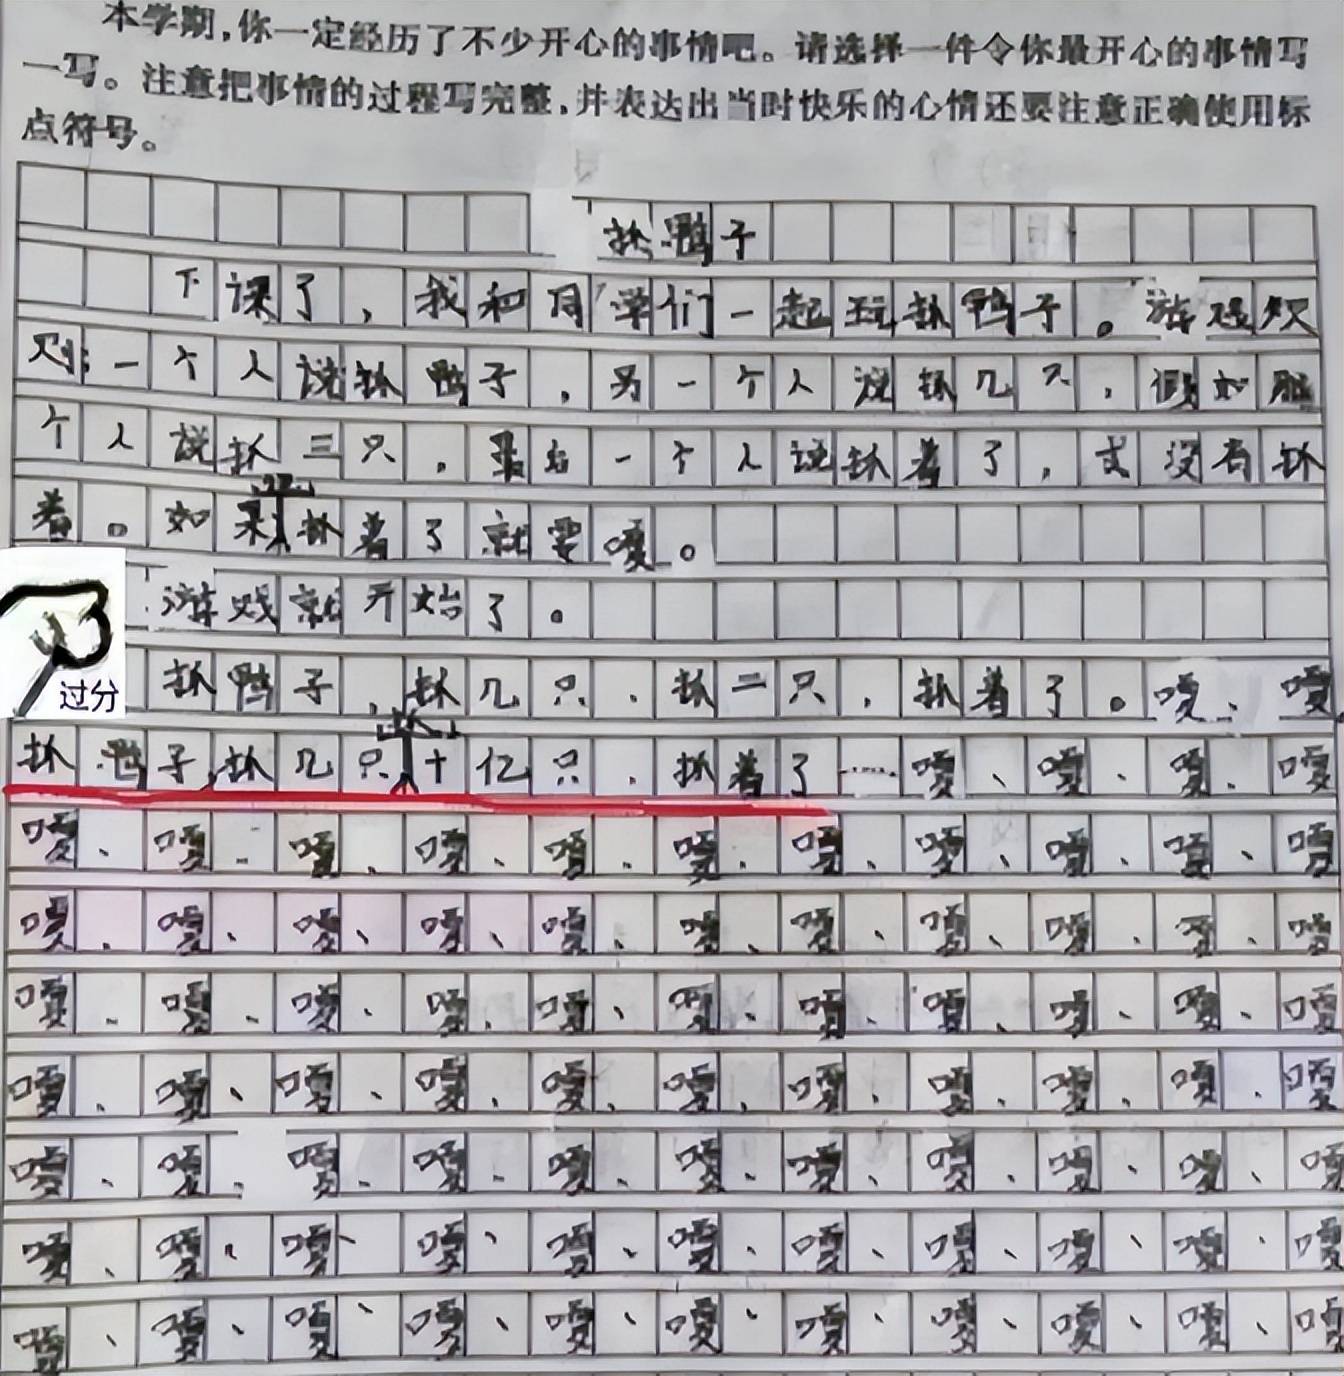 本学期,你一定经历了不少开心的事情吧。请选择一件令你最开心的事情写
一写。注意把事情的过程写完整,并表达出当时快乐的心情还要注意正确使用标
点符号。
抓鸭子
下课了，我和同学们一起玩抓鸭子。游戏规
则:一个人说抓鸭子，另一个人说抓几只，假如那
个人说抓三只，最后一个人说抓着了，或没有抓
着。如果抓着了就要嘎。
游戏就开始了。
过分
抓鸭子、抓几只、抓二只，抓着了。嘎、嘎
抓鸭子,抓几只十亿只、抓着了……嘎、嘎、嘎、嘎
嘎、嘎、嘎、嘎、嘎、嘎、嘎、嘎、嘎、嘎、嘎
嘎、嘎、嘎、嘎、嘎、嘎、嘎、嘎、嘎、嘎、嘎
嘎、嘎、嘎、嘎、嘎、嘎、嘎、嘎、嘎、嘎、嘎
嘎、嘎、嘎、嘎、嘎、嘎、嘎、嘎、嘎、嘎、嘎
嘎、嘎、嘎、嘎、嘎、嘎、嘎、嘎、嘎、嘎、嘎
嘎、嘎、嘎、嘎、嘎、嘎、嘎、嘎、嘎、嘎、嘎
嘎、嘎、嘎、嘎、嘎、嘎、嘎、嘎、嘎、嘎、嘎